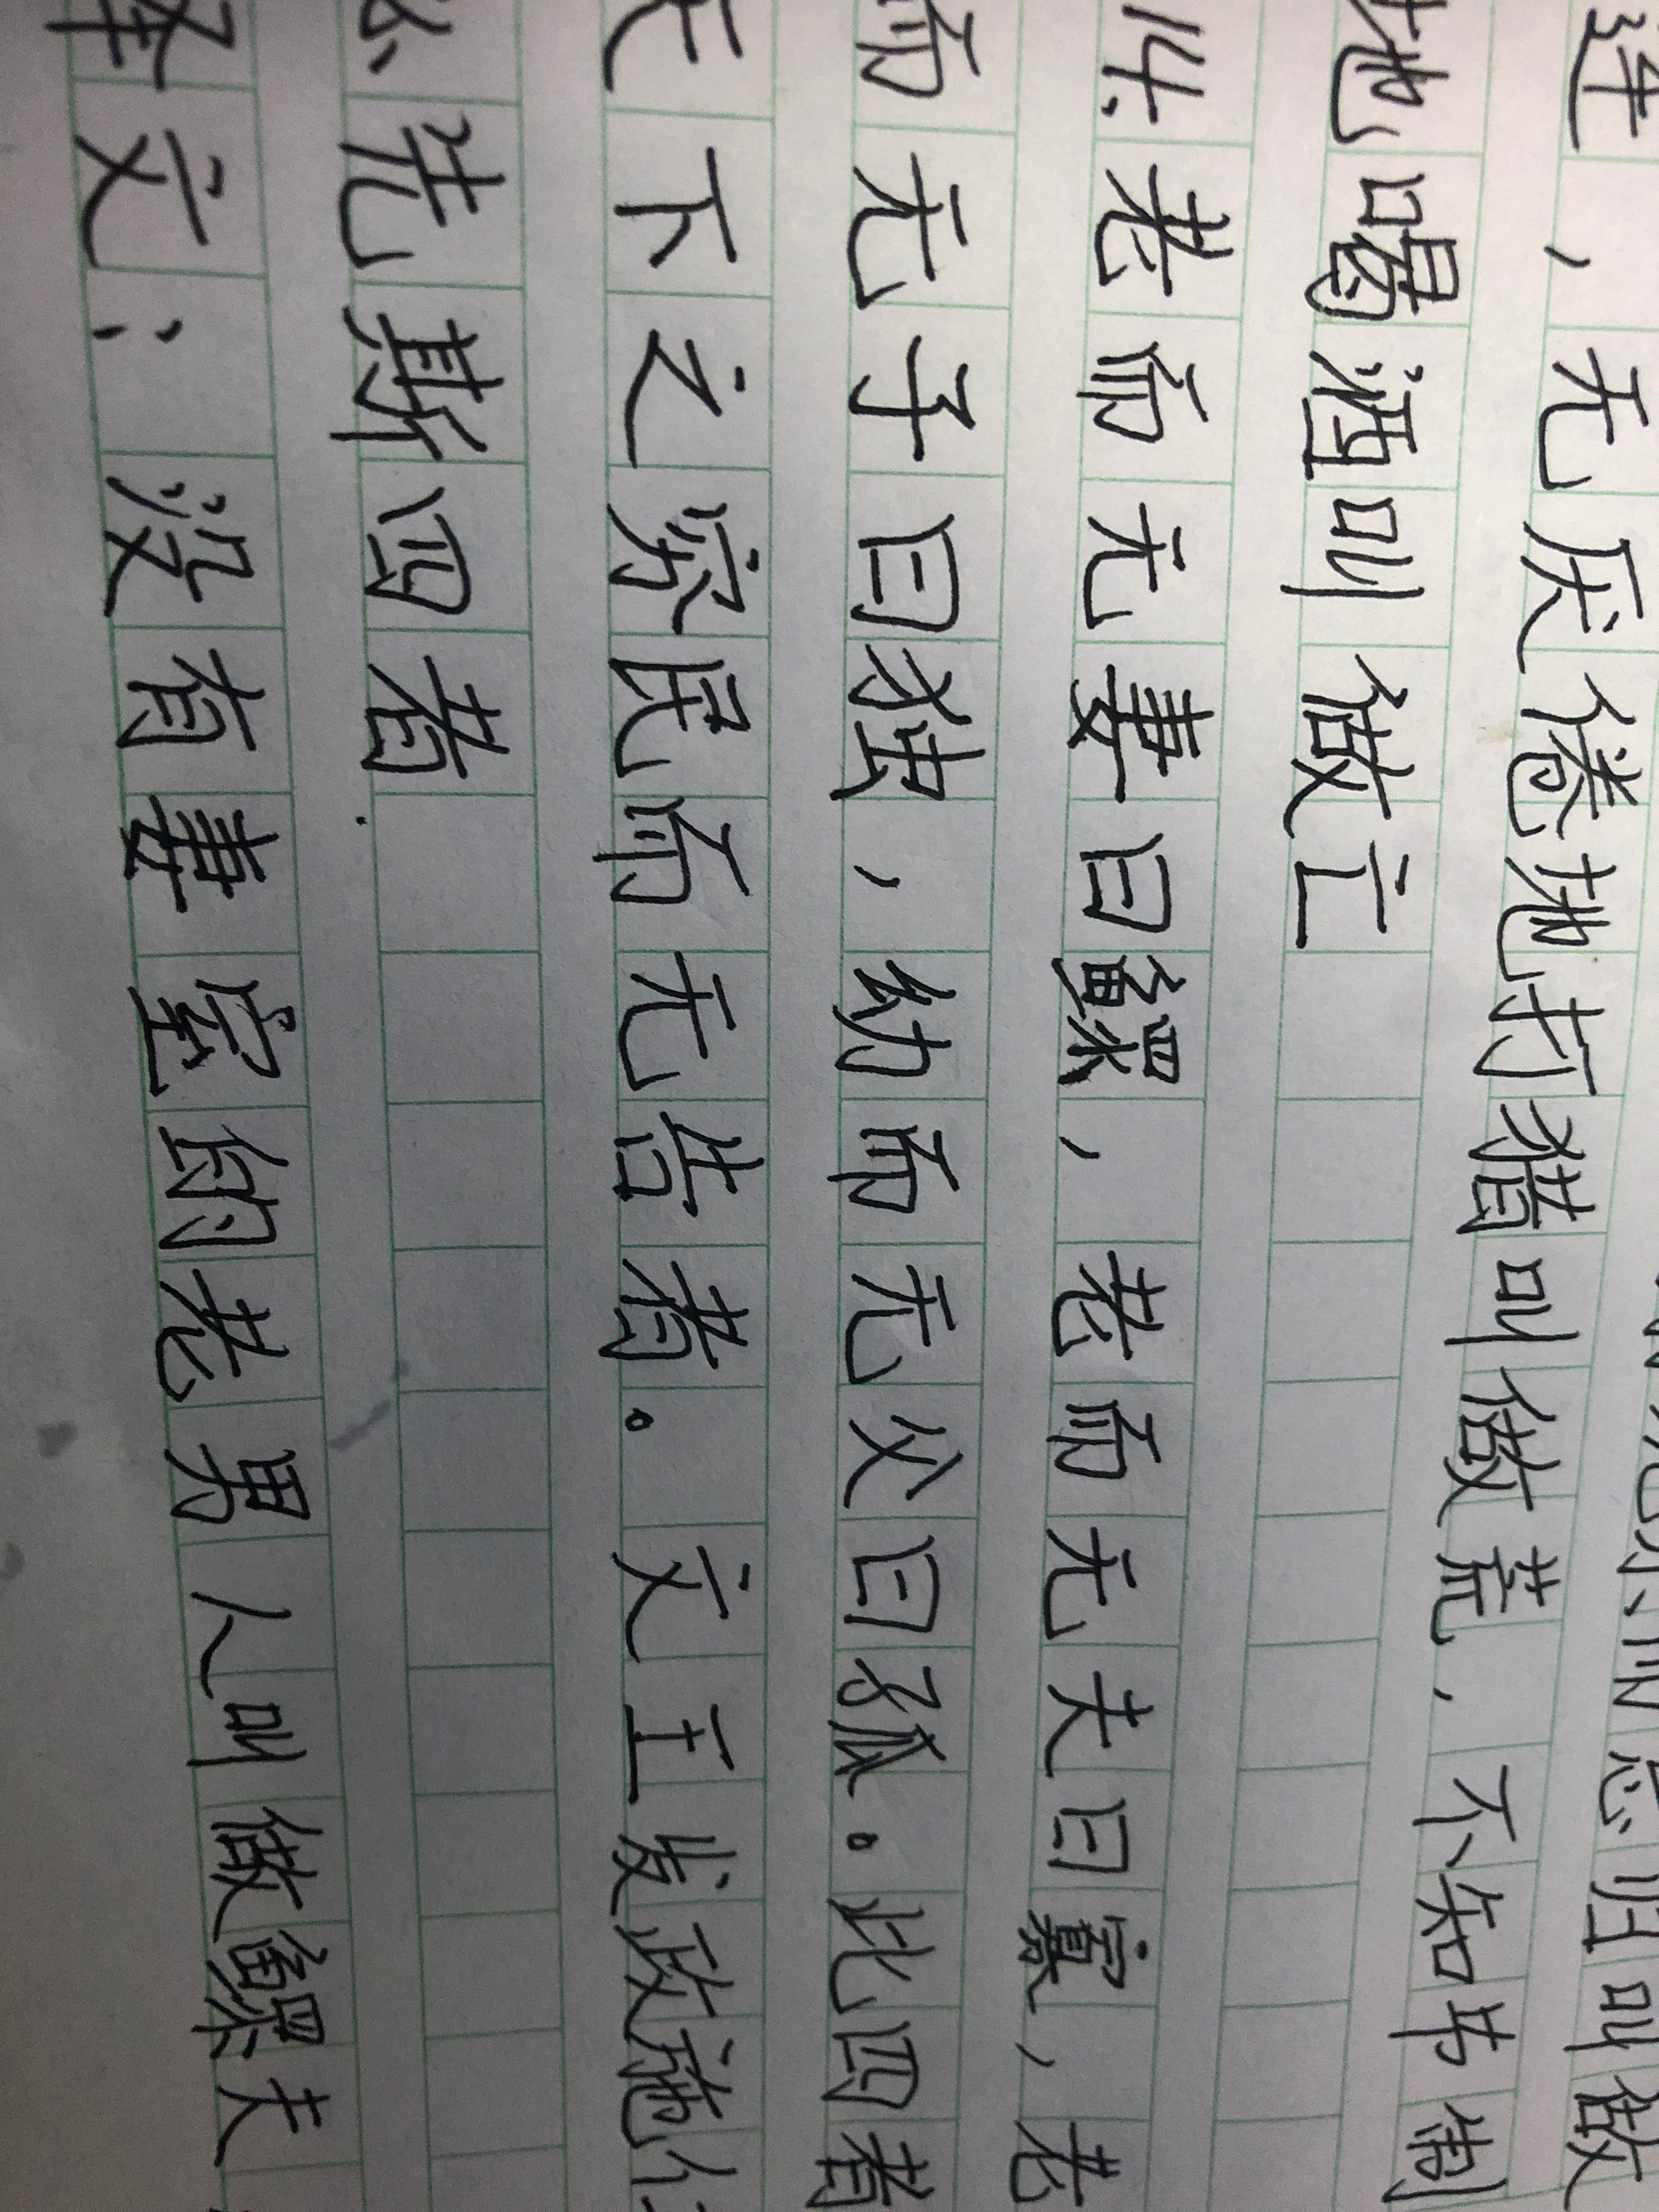 而忘归叫做
连，无厌倦地打猎叫做荒，不知节制
地喝酒叫做亡
老而无妻曰鳏，老而无夫曰寡，老
而无子曰独，幼而无父曰孤。此四者
天下之穷民而无告者。文王发政施仁
必先斯四者
译文：没有妻室的老男人叫做鳏夫